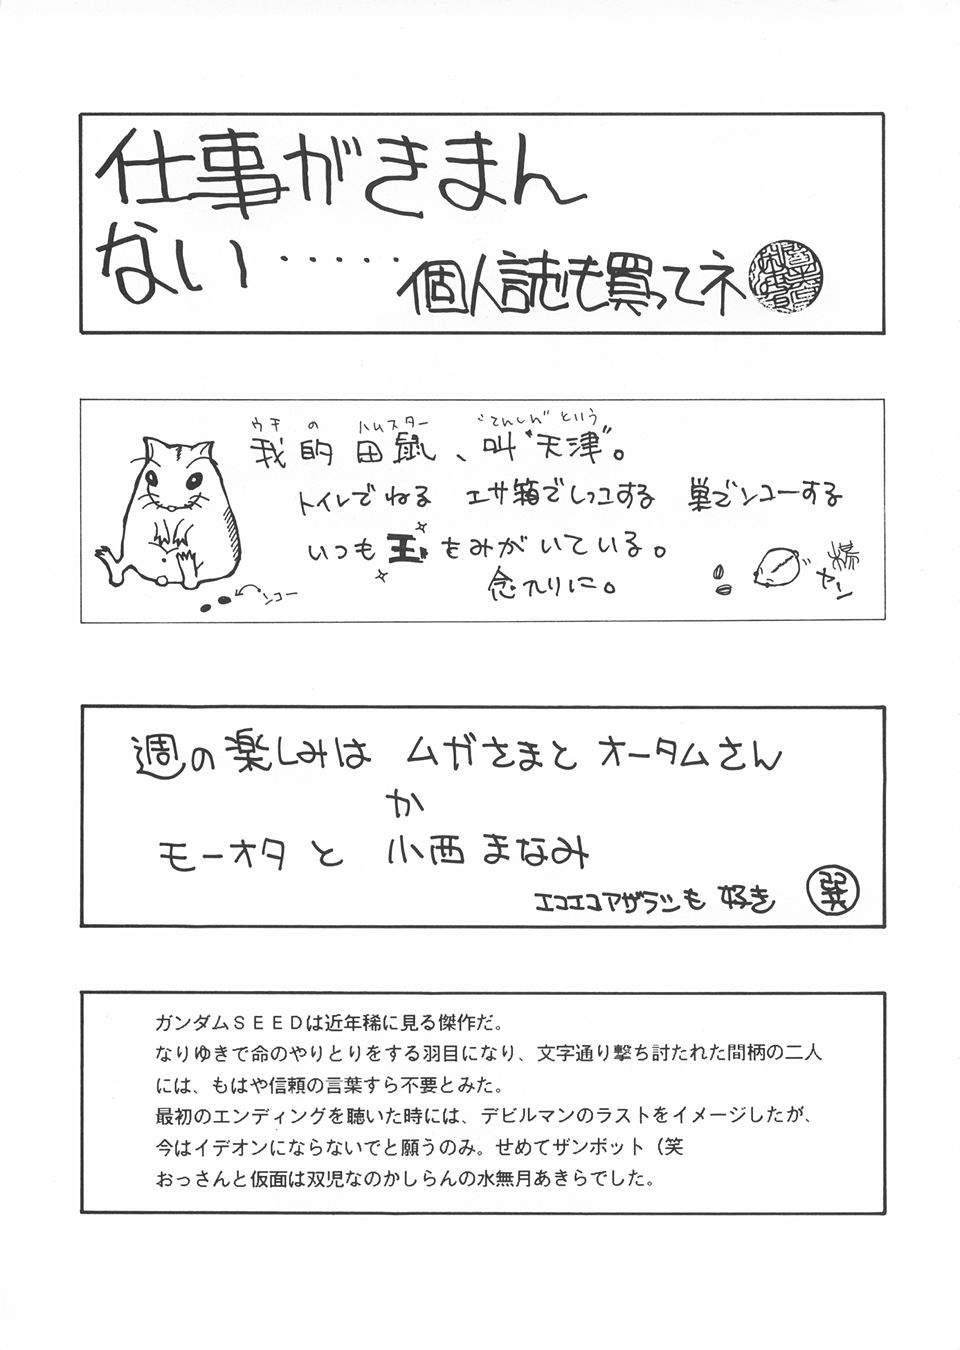 仕事がきまん
ない・・・・・・個人誌も買ってネ
ウチ の ハムスター "てんしん"という
我的田鼠、叫"天津"。
トイレでねる エサ箱でしっコする 巣でンコーする
いつも玉をみがいている。
念入りに。
ンコー
ヤーン
週の楽しみは ムガさまと オータムさん
か
モーオタと 小西まなみ
エコエコアザラシも 好き
巽
ガンダムSEEDは近年稀に見る傑作だ。
なりゆきで命のやりとりをする羽目になり、文字通り撃ち討たれた間柄の二人
には、もはや信頼の言葉すら不要とみた。
最初のエンディングを聴いた時には、デビルマンのラストをイメージしたが、
今はイデオンにならないでと願うのみ。せめてザンボット（笑
おっさんと仮面は双児なのかしらんの水無月あきらでした。